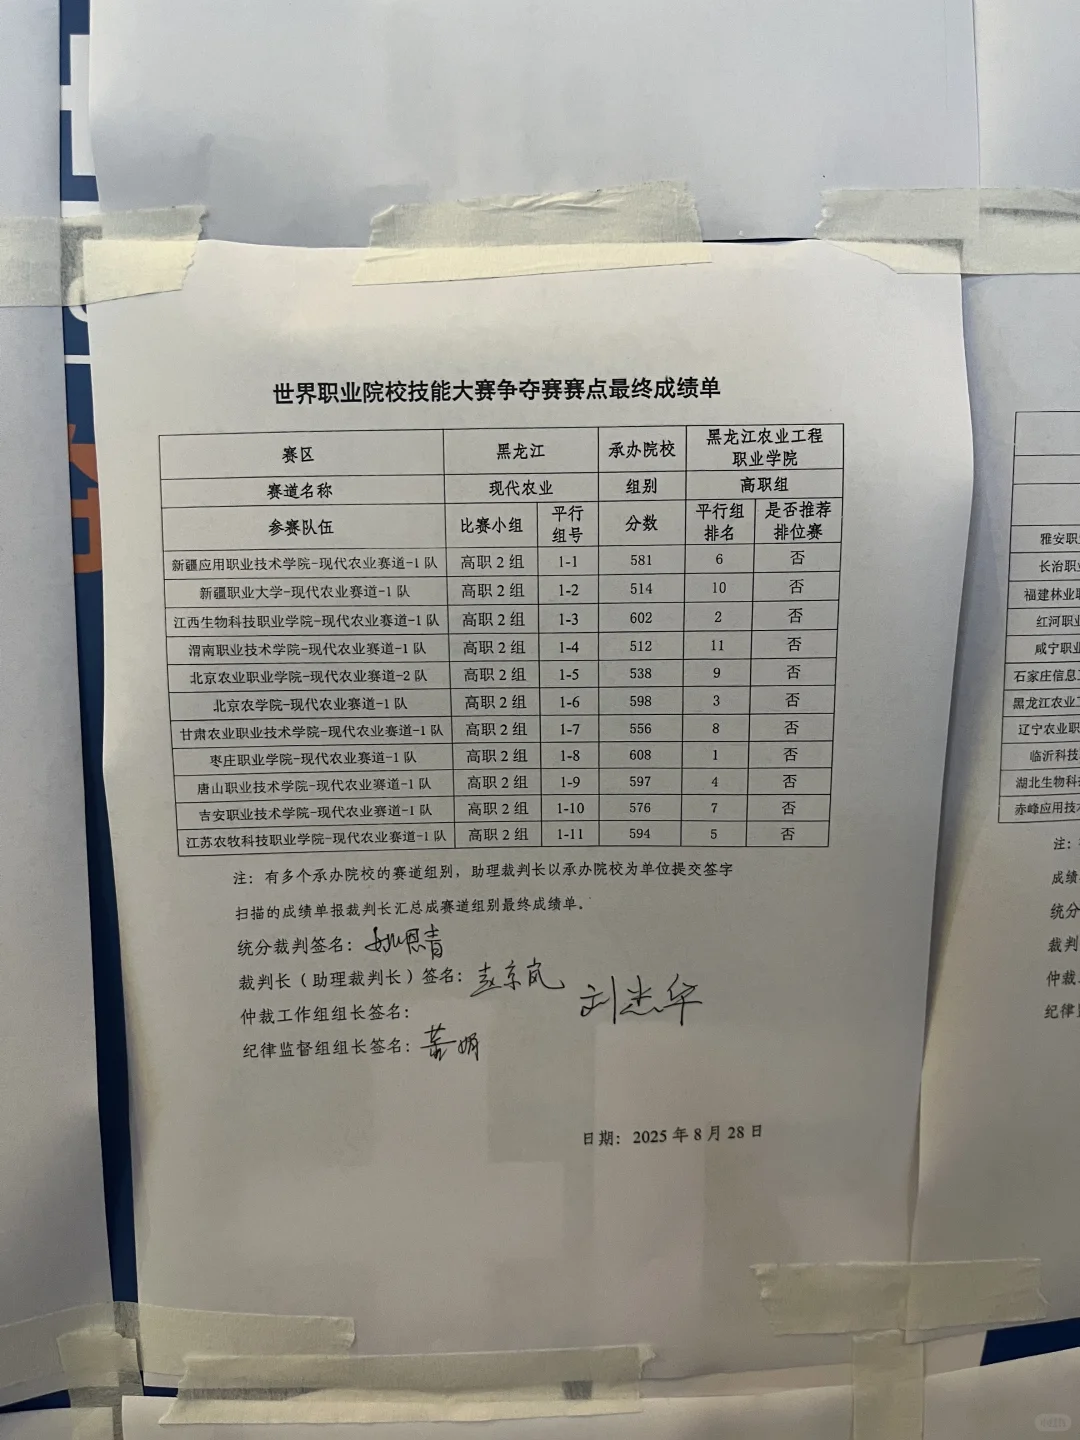 世界职业院校技能大赛争夺赛赛点最终成绩单
赛区 黑龙江 承办院校 黑龙江农业工程职业学院
赛道名称 现代农业 组别 高职组
参赛队伍 比赛小组 平行组号 分数 平行组排名 是否推荐排位赛
新疆应用职业技术学院-现代农业赛道-1队 高职2组 1-1 581 6 否
新疆职业大学-现代农业赛道-1队 高职2组 1-2 514 10 否
江西生物科技职业学院-现代农业赛道-1队 高职2组 1-3 602 2 否
渭南职业技术学院-现代农业赛道-1队 高职2组 1-4 512 11 否
北京农业职业学院-现代农业赛道-2队 高职2组 1-5 538 9 否
北京农学院-现代农业赛道-1队 高职2组 1-6 598 3 否
甘肃农业职业技术学院-现代农业赛道-1队 高职2组 1-7 556 8 否
枣庄职业学院-现代农业赛道-1队 高职2组 1-8 608 1 否
唐山职业技术学院-现代农业赛道-1队 高职2组 1-9 597 4 否
吉安职业技术学院-现代农业赛道-1队 高职2组 1-10 576 7 否
江苏农牧科技职业学院-现代农业赛道-1队 高职2组 1-11 594 5 否
注：有多个承办院校的赛道组别，助理裁判长以承办院校为单位提交签字
扫描的成绩单报裁判长汇总成赛道组别最终成绩单。
统分裁判签名：姚恩青
裁判长（助理裁判长）签名：赵京岚 刘杰华
仲裁工作组组长签名：
纪律监督组组长签名：董娟
日期：2025年8月28日
雅安职
长治职业
福建林业职
红河职业
咸宁职业
石家庄信息工
黑龙江农业工
辽宁农业职
临沂科技
湖北生物科技
赤峰应用技术
注：
成绩
统分
裁判
仲裁
纪律监